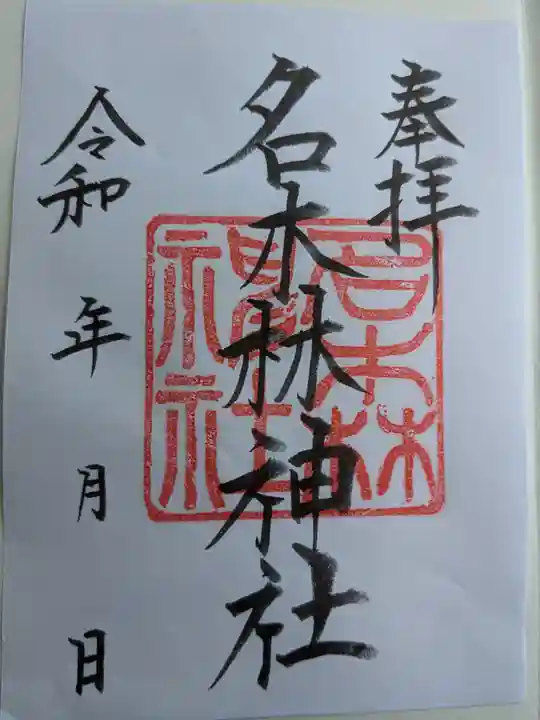 奉拝
名木林神社
名木林神社
令和 年 月 日